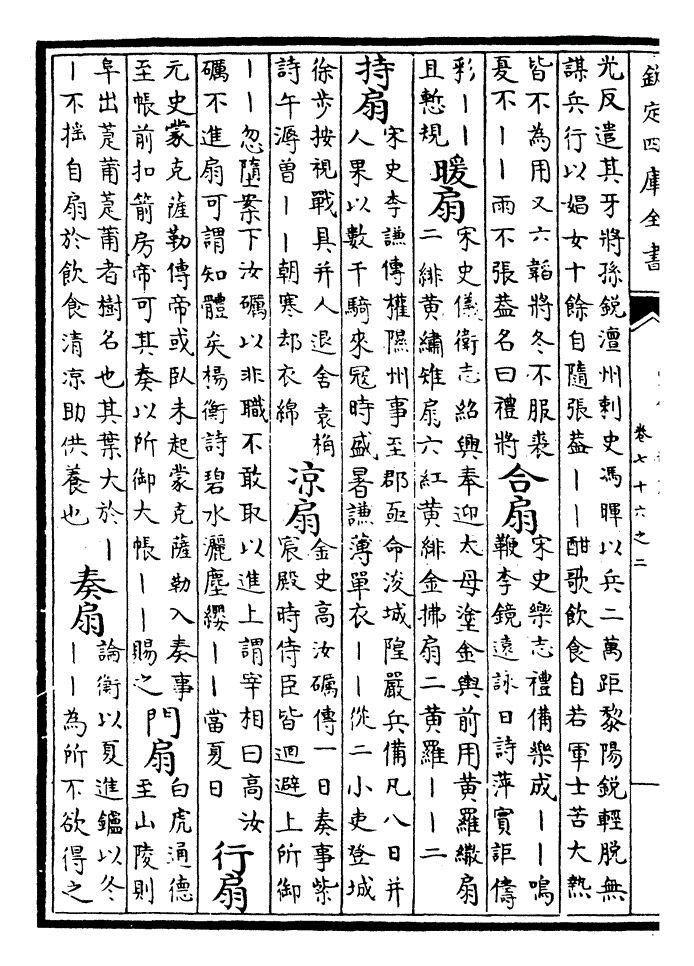 欽定四庫全書
卷七十六之二
光反遣其牙將孫鋭澶州刺史馮暉以兵二萬距黎陽鋭輕脱無
謀兵行以娼女十餘自隨張葢丨丨酣歌飲食自若軍士苦大熱
皆不為用又六韜將冬不服裘
夏不丨丨雨不張葢名曰禮將
合扇
宋史樂志禮備樂成丨丨鳴
鞭李鏡遠詠日詩萍實詎儔
彩丨丨
且慙視
暖扇
宋史儀衛志紹興奉迎太母塗金輿前用黄羅繖扇
二緋黄繡雉扇六紅黄緋金拂扇二黄羅丨丨二
持扇
宋史李謙傳權隰州事至郡亟命浚城隍嚴兵備凡八日并
人果以數千騎來冦時盛暑謙薄單衣丨丨從二小吏登城
徐步按視戰具并人退舍 袁桷
詩午溽曾丨丨朝寒却衣綿
凉扇
金史高汝礪傳一日奏事紫
宸殿時侍臣皆迴避上所御
丨丨忽墮案下汝礪以非職不敢取以進上謂宰相曰高汝
礪不進扇可謂知體矣楊衡詩碧水灑塵纓丨丨當夏日
行扇
元史蒙克薩勒傳帝或臥未起蒙克薩勒入奏事
至帳前扣箭房帝可其奏以所御大帳丨丨賜之
門扇
白虎通德
至山陵則
阜出萐莆萐莆者樹名也其葉大於丨
丨不揺自扇於飲食清凉助供養也
奏扇
論衡以夏進鑪以冬
丨丨為所不欲得之